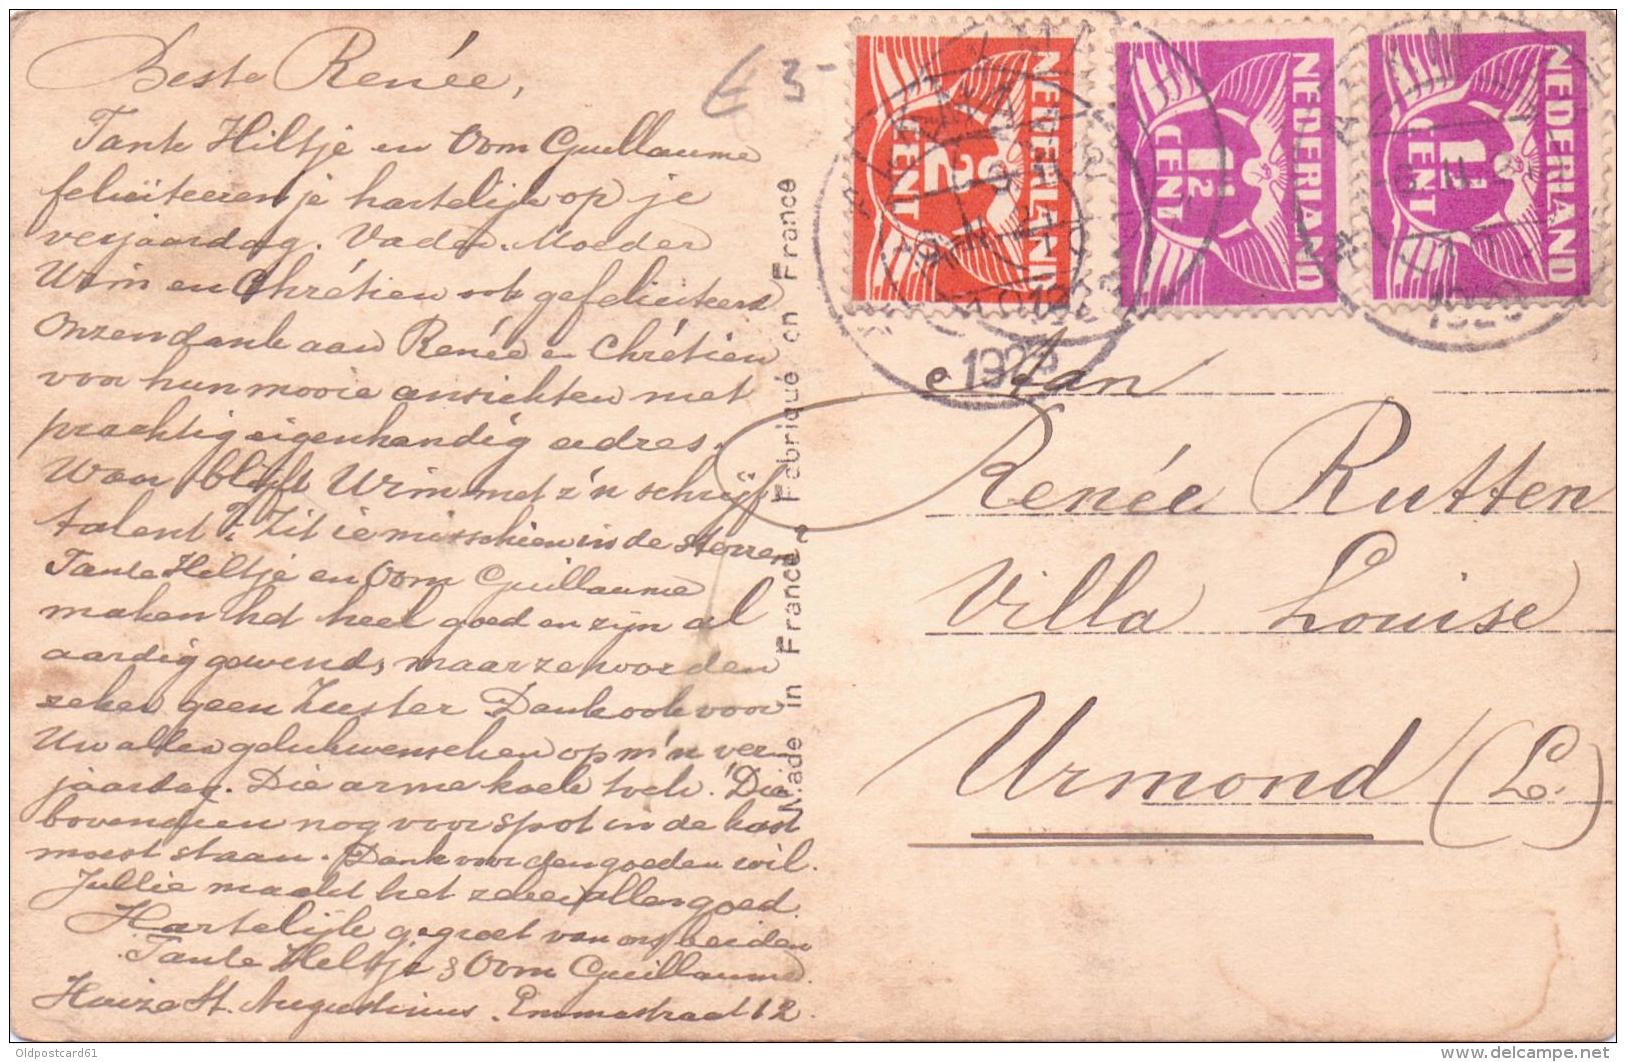 Beste Renée,
Tante Hiltje en Oom Guillaume
feliciteeren je hartelijk op je
verjaardag. Vader. Moeder
Wim en Chrétien ook gefeliciteerd
Onzen dank aan Renée en Chrétien
voor hun mooie ansichten met
prachtig eigenhandig adres.
Waar blijft Wim met z'n schrijf
talent? Zit ie misschien in de sterren
Tante Hiltje en Oom Guillaume
maken het heel goed en zijn al
aardig gewend, maar ze worden
zeker geen Zuster Dank ook voor
Uw aller gelukwenschen op m'n ver-
jaardag. Die arme koek toch. Die
bovendien nog voor spot in de kast
moest staan. Dank voor den goeden wil.
Jullie maakt het zeker allen goed.
Hartelijk gegroet van ons beiden
Tante Hiltje & Oom Guillaume
Huize St. Augustinus. Emmastraat 12.
€ 3-
Made in France - Fabriqué en France
NEDERLAND
2 CENT
NEDERLAND
1½ CENT
NEDERLAND
1½ CENT
1923
Aan
Renée Rutten
Villa Louise
Urmond (L.)
Oldpostcard61
www.delcampe.net